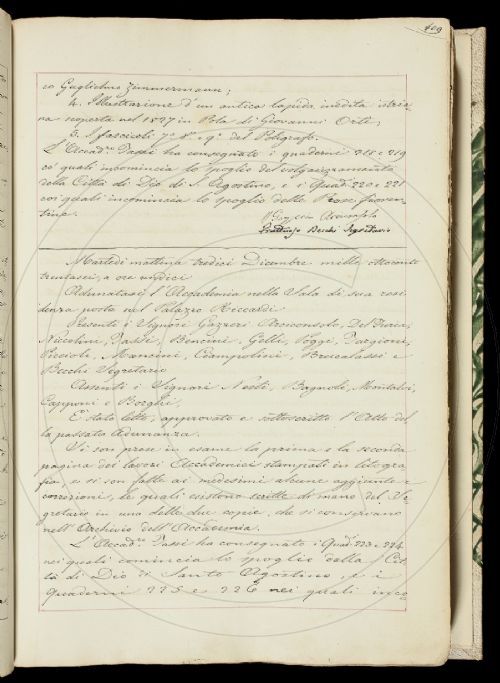 409
co Guglielmo Zimmermann;
4. Illustrazione d'un antica lapida inedita istria-
na scoperta nel 1827 in Pola di Giovanni Orti;
5. I fascicoli 7º 8º e 9º del Poligrafo.
L'Accad.co Tassi ha consegnato i quaderni 218 e 219
co' quali incomincia lo spoglio del volgarizzamento
della Città di Dio di S. Agostino, e i Quad. 220 e 221
coi quali incomincia lo spoglio delle Prose fioren-
tine.
Arciconsolo
Fruttuoso Becchi Segretario
Martedì mattina tredici Dicembre mille ottocento
trentasei, a ore undici
Adunatasi l'Accademia nella Sala di sua resi-
denza posta nel Palazzo Riccardi
Presenti i Signori Gazzeri Arciconsolo, Del Furia,
Niccolini, Tassi, Bencini, Gelli, Poggi, Targioni,
Piccioli, Mancini, Ciampolini, Brucalassi e
Becchi Segretario
Assenti i Signori Nesti, Bagnoli, Montalvi,
Capponi e Borghi.
È stato letto, approvato e sottoscritto l'Atto del-
la passata Adunanza.
Si son prese in esame la prima e la seconda
pagina dei lavori Accademici stampati in litogra-
fia, e si son fatte ai medesimi alcune aggiunte e
correzioni, le quali esistono scritte di mano del Se-
gretario in una delle due copie, che si conservano
nell'Archivio dell'Accademia.
L'Accad.co Tassi ha consegnato i Quad. 223 e 224
nei quali comincia lo spoglio della Cit-
tà di Dio di Santo Agostino, e i
Quaderni 225 e 226 nei quali inco-